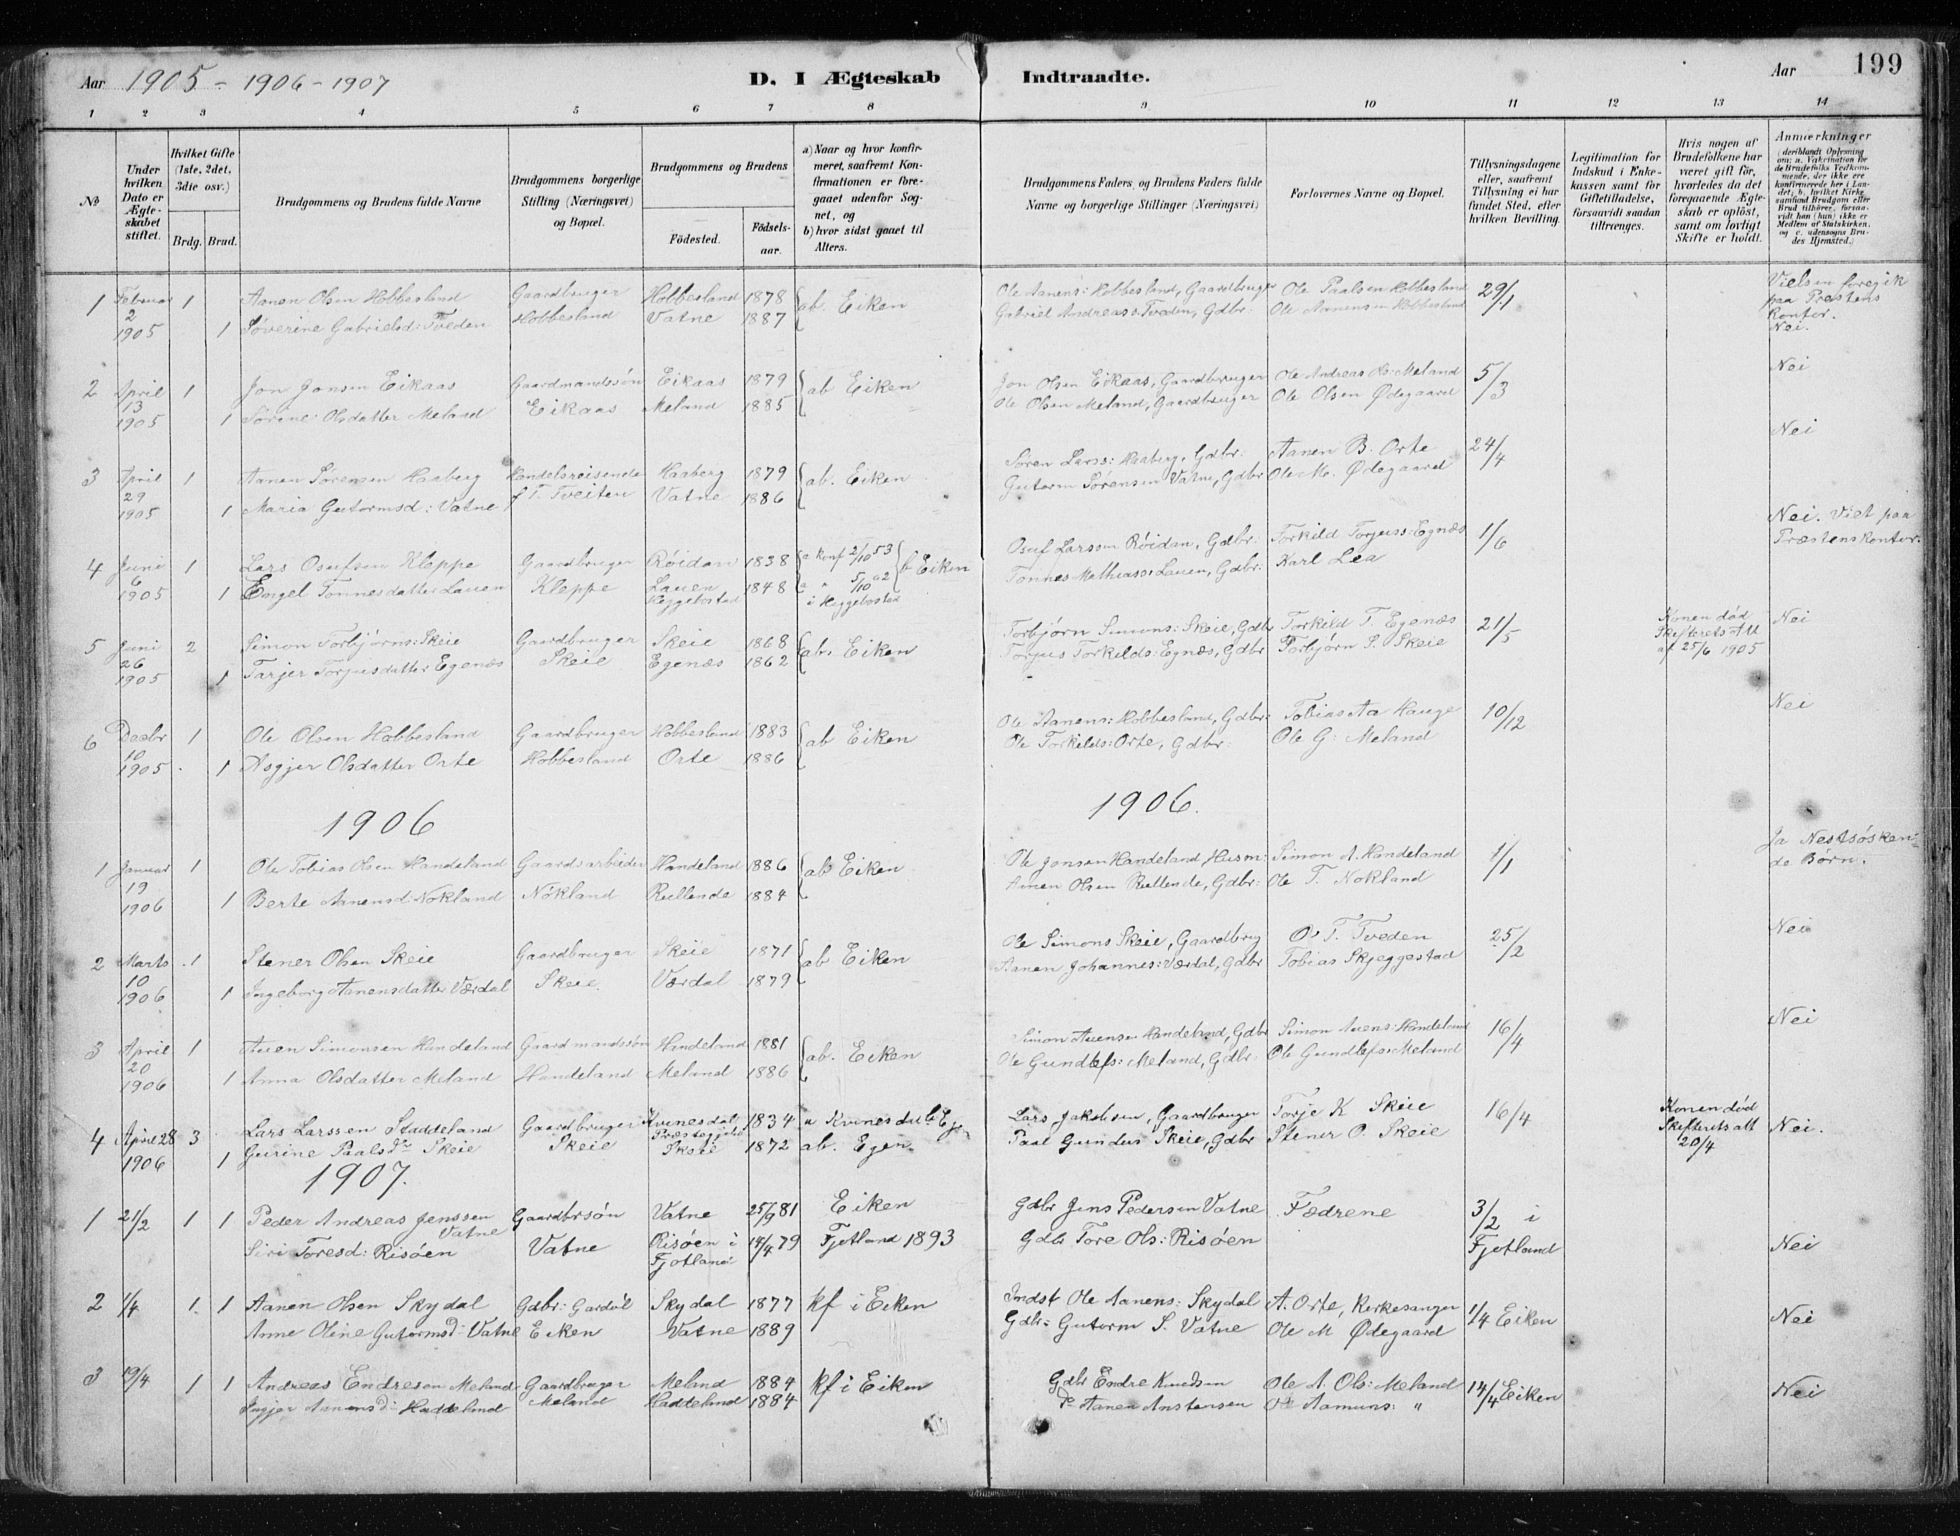 Aar 1905 - 1906 - 1907 D. I Ægteskab Indtraadte. Aar 199
1 2 3 4 5 6 7 8 9 10 11 12 13 14
No
Under hvilken Dato er Ægteskabet stiftet.
Hvilket Gifte (1ste, 2det, 3die osv.)
Brdg. Brud.
Brudgommens og Brudens fulde Navne
Brudgommens borgerlige Stilling (Næringsvei) og Bopæl.
Brudgommens og Brudens
Fødested. Fødselsaar.
a) Naar og hvor konfirmeret, saafremt Konfirmationen er foregaaet udenfor Sognet, og
b) hvor sidst gaaet til Alters.
Brudgommens Faders og Brudens Faders fulde Navne og borgerlige Stillinger (Næringsvei)
Forlovernes Navne og Bopæl.
Tillysningsdagene eller, saafremt Tillysning ei har fundet Sted, efter hvilken Bevilling.
Legitimation for Indskud i Enkekassen samt for Giftetilladelse, forsaavidt saadan tiltrænges.
Hvis nogen af Brudefolkene har været gift før, hvorledes da det foregaaende Ægteskab er opløst, samt om lovligt Skifte er holdt.
Anmærkninger (deriblandt Oplysning om: a. Vakcination for de Brudefolks Vedkommende, der ikke ere konfirmerede her i Landet; b. hvilket Kirkesamfund Brudgom eller Brud tilhører, forsaavidt han (hun) ikke er Medlem af Statskirken, og c. udensogns Brudes Hjemsted.)
1 Februar 1 Aanen Olsen Hobbesland Gaardbruger Hobbesland 1878 ab. Eiken Ole Aanens: Hobbesland, Gaardbruger Ole Paalsen Hobbesland 29/1 Vielsen foregik
2 paa Prestens
1905 1 Søverine Gabrielsd: Tveden Hobbesland Vatne 1887 Gabriel Andreass: Tveden, Gdbr: Ole Aanensen Hobbesland Kontor.
Nei.
2 April 1 Jon Jonsen Eikaas Gaardmandssøn Eikaas 1879 ab Eiken Jon Olsen Eikaas, Gaardbruger Ole Andreas Ols: Meland 5/3 Nei
13
1905 1 Sørine Olsdatter Meland Eikaas Meland 1885 Ole Olsen Meland, Gaardbruger Ole Olsen Ødegaard
3 April 1 Aanen Sørensen Haaberg Handelsreisende Haaberg 1879 ab. Eiken Søren Larss: Haaberg, Gdbr. Aanen B. Orte 24/4 Nei
29
1905 1 Maria Gutormsd: Vatne f T. Tveiten Vatne 1886 Gutorm Sørensen Vatne, Gdbr Ole M. Ødegaard
4 Juni 1 Lars Osufsen Kleppe Gaardbruger Røidan 1838 a konf 2/10 53 b Eiken Osuf Larssen Røidan, Gdbr: Torkild Torjuss: Egnæs 1/6 Nei. Viet paa
6 Præstens kontor.
1905 1 Engel Tønnesdatter Lauen Kleppe Lauen Heggebostad 1848 a " 5/10 62 i Heggebostad Tønnes Mathiass: Lauen, Gdbr: Karl Lea
5 Juni 2 Simon Torbjørns: Skeie Gaardbruger Skeie 1868 ab. Eiken Torbjørn Simons: Skeie, Gdbr Torkild T. Egenæs 21/5 Konen død Nei
26 Skifterets Att
1905 1 Tarjer Torjusdatter Egenæs Skeie Egenæs 1862 Torjus Torkilds: Egnæs, Gdbr Torbjørn S. Skeie af 25/6 1905
6 Decbr 1 Ole Olsen Hobbesland Gaardbruger Hobbesland 1883 ab Eiken Ole Aanens: Hobbesland, Gdbr: Tobias Aa Hauge 10/12 Nei
1905 1 Asgjer Olsdatter Orte Hobbesland Orte 1886 Ole Torkilds: Orte, Gdbr: Ole G: Meland
1906 1906.
1 Januar 1 Ole Tobias Olsen Handeland Gaardsarbeider Handeland 1886 ab Eiken Ole Jonsen Handeland Husm: Simon A. Handeland 1/1 Ja Nestsøsken-
19 de Børn.
1906 1 Berte Aanensd Nøkland Nøkland Rullende 1884 Aanen Olsen Rullende, Gdbr: Ole T. Nøkland
2 Marts 1 Stener Olsen Skeie Gaardbruger Skeie 1871 ab Eiken Ole Simons Skeie, Gaardbrug O. T. Tveden 25/2 Nei
10
1906 1 Ingeborg Aanensdatter Værdal Skeie. Værdal 1879 Aanen Johannes: Værdal, Gdbr Tobias Skjeggestad
3 April 1 Auen Simonsen Handeland Gaardmandssøn Handeland 1881 ab. Eiken Simon Auensen Handeland, Gdbr Simon Auens: Handeland 16/4 Nei
20
1906 1 Anna Olsdatter Meland Handeland Meland 1886 Ole Gundlefs: Meland, Gdbr: Ole Gundlefs: Meland
4 April 28 3 Lars Larssen Staddeland Gaardbruger Kvinesdal Præstegjeld 1834 a Kvinesdal Lars Jakobsen, Gaardbruger Torje K Skeie 16/4 Konen død
Skifterets att Nei.
1906 1 Gurine Paalsdr Skeie Skeie Skeie 1872 ab. Egen Paal Gundus Skeie, Gdbr Stener O. Skeie 20/4
1907.
1 21/2 1 1 Peder Andreas Jenssen Vatne Gaardbrsøn Vatne 25/9 81 Eiken Gdbr Jens Pedersen Vatne Fædrene 3/2 i
Siri Toresd: Risøen Vatne Risøen i Fjotland 14/4 79 Fjotland 1893 Gdbr Tore Ols: Risøen Fjotland Nei
2 1/4 1 1 Aanen Olsen Skydal Gdbr: Gardøl Skydal 1877 kf i Eiken Indst Ole Aanens: Skydal A. Orte, Kirkesanger 1/4 Eiken
Anne Oline Gutormsd: Vatne Eiken Vatne 1889 Gdbr: Gutorm S. Vatne Ole M Ødegaard Nei
3 19/4 1 1 Andreas Endresen Meland Gaardbruger Meland 1884 kf i Eiken Gdbr Endre Knudsen Ole A. Ols: Meland 14/4 Eiken Nei
Asgjer Aanensd: Haddeland Meland Haddeland 1884 Do Aanen Anstensen O. Aamuns: "